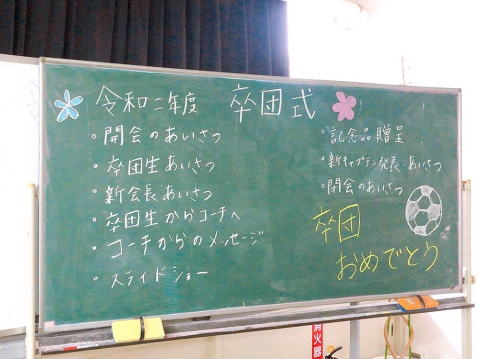 令和二年度 卒団式
・開会のあいさつ
・卒団生あいさつ
・新会長あいさつ
・卒団生からコーチへ
・コーチからのメッセージ
・スライドショー
・記念品贈呈
・新キャプテン発表・あいさつ
・閉会のあいさつ
卒団
おめでとう
消火器